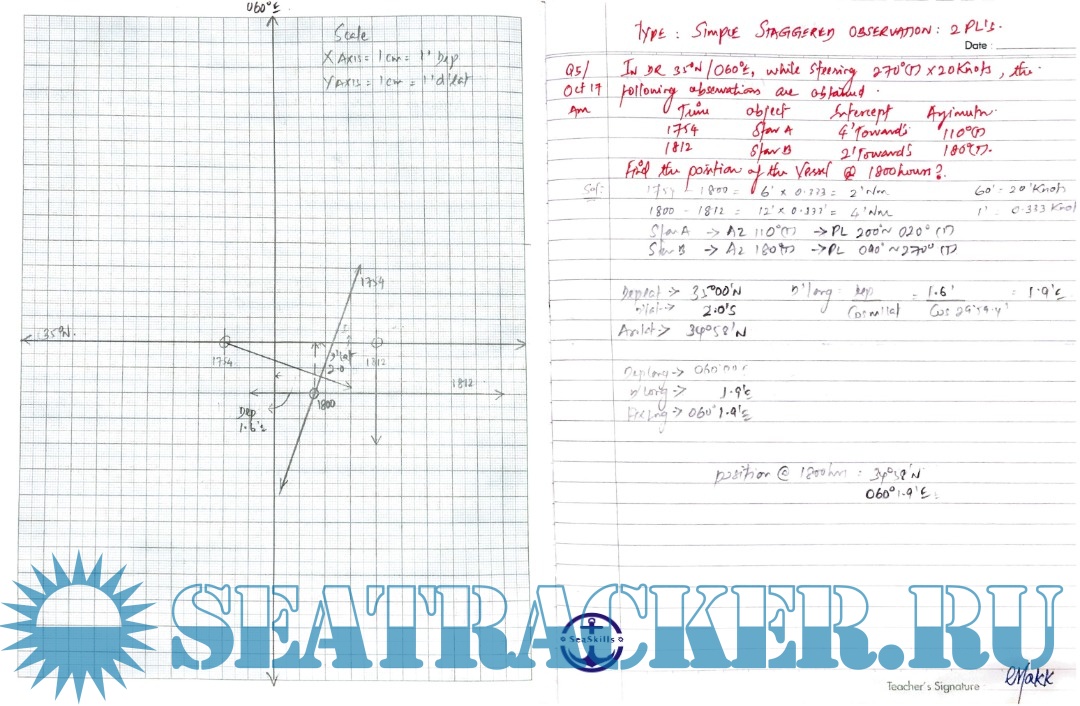 060°E
Scale
X Axis = 1 cm = 1' Dep
Y Axis = 1 cm = 1' d'lat
35°N.
1754
1754
D'lat
2.0
1812
1812
Dep
1.6'E
1800
TYPE : SIMPLE STAGGERED OBSERVATION : 2 PL'S.
Date :
Q5/ In DR 35°N / 060°E, while steering 270°(T) x 20 Knots, the
Oct 17 following observations are obtained.
Am Time object Intercept Azimuth
1754 Star A 4' Towards 110°(T)
1812 Star B 2' Towards 180°(T).
Find the position of the Vessel @ 1800 hours?
Sol: 1754 - 1800 = 6' x 0.333 = 2' Nm 60' - 20' Knots
1800 - 1812 = 12' x 0.333' = 4' Nm 1' - 0.333 Knot
Star A -> Az 110°(T) -> PL 200° ~ 020° (T)
Star B -> Az 180°(T) -> PL 090° ~ 270° (T)
Dep lat -> 35°00'N D'long = Dep = 1.6' = 1.9'E
D'lat -> 2.0'S Cos m'lat
34°58'N
Dep long ->
D'long -> 1.9'E
Fix Lng -> 060° 1.9'E
position @ 1800 hrs = 34°58'N
060° 1.9'E
SEATRACKER.RU
SeaSkills
Teacher's Signature